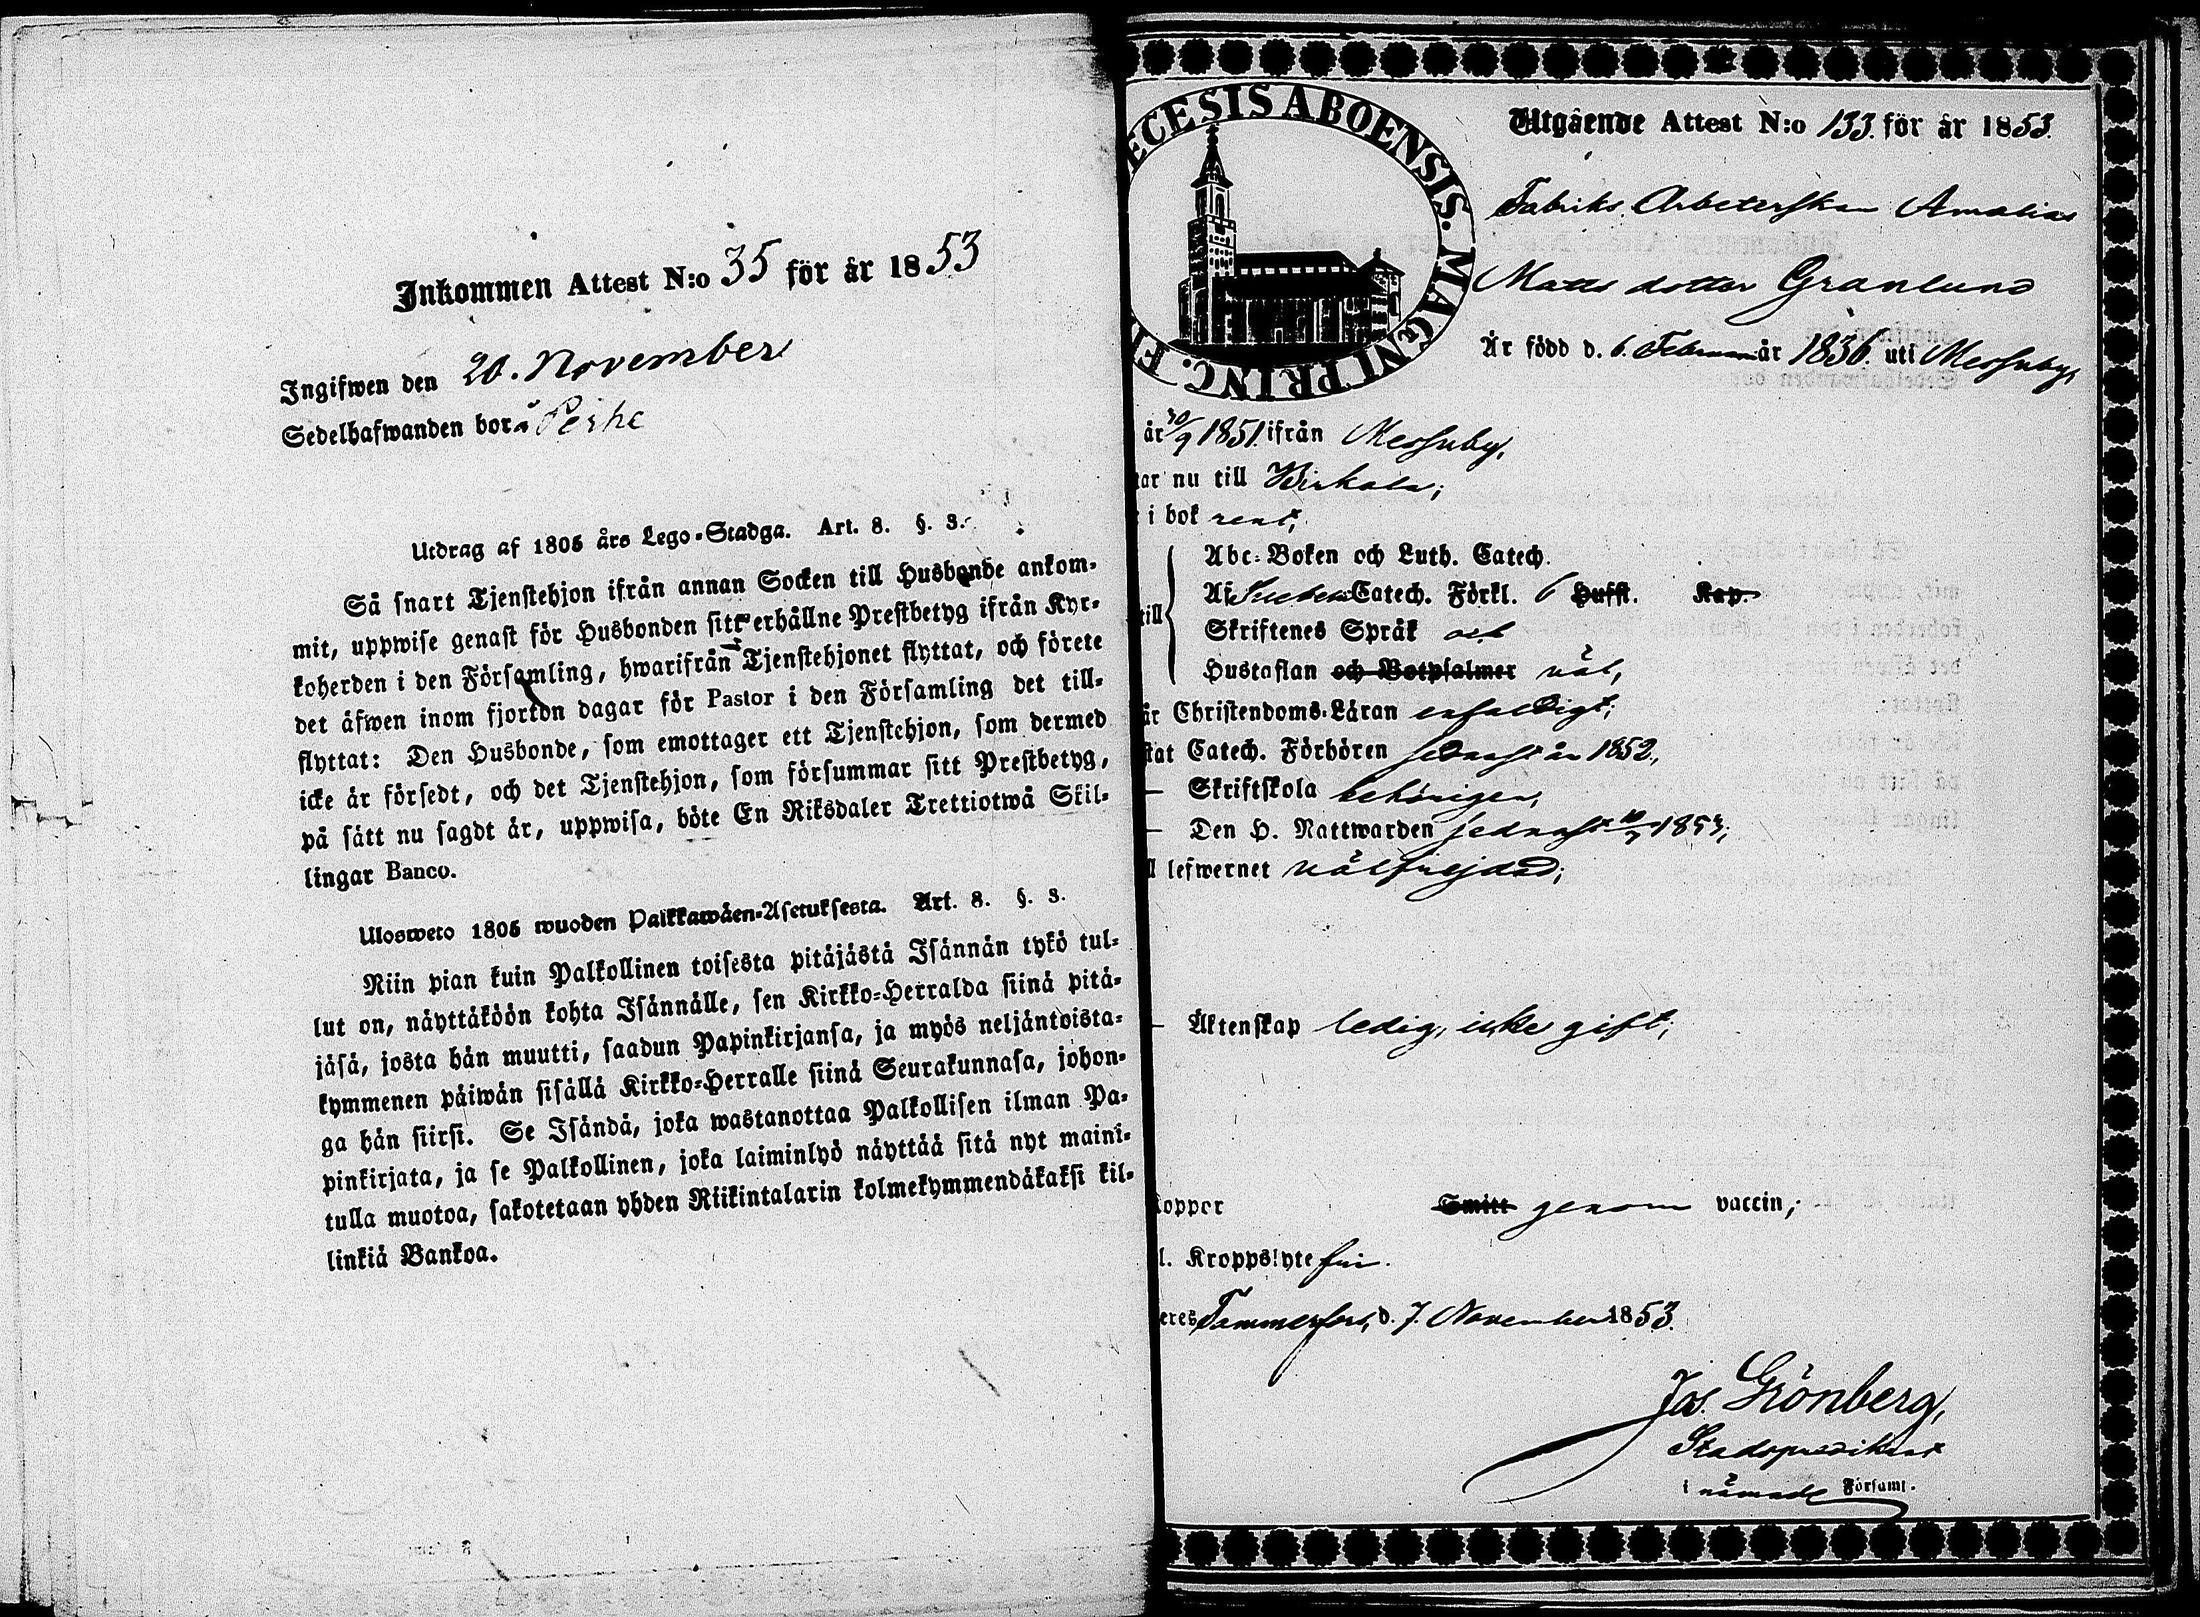 Inkommen Attest N:o 35 för år 1853
Ingifwen den 20. November
Sedelhafwanden bor å Perhe
Utdrag af 1805 års Lego-Stadga. Art. 8. §. 3.
Så snart Tjenstehjon ifrån annan Socken till Husbonde ankom-
mit, uppwise genast för Husbonden sitt erhållne Prestbetyg ifrån Kyr-
koherden i den Församling, hwarifrån Tjenstehjonet flyttat, och förete
det äfwen inom fjorton dagar för Pastor i den Församling det till-
flyttat: Den Husbonde, som emottager ett Tjenstehjon, som dermed
icke är försedt, och det Tjenstehjon, som försummar sitt Prestbetyg,
på sätt nu sagdt är, uppwisa, böte En Riksdaler Trettiotwå Skil-
lingar Banco.
Ulosweto 1805 wuoden Palkkawäen-Asetuksesta. Art. 8. §. 3.
Niin pian kuin Palkollinen toisesta pitäjästä Isännän tykö tul-
lut on, näyttäköön kohta Isännälle, sen Kirkko-Herralda siinä pitä-
jäsä, josta hän muutti, saadun Papinkirjansa, ja myös neljäntoista-
kymmenen päiwän sisällä Kirkko-Herralle siinä Seurakunnasa, johon-
ga hän siirsi. Se Isändä, joka wastanottaa Palkollisen ilman Pa-
pinkirjata, ja se Palkollinen, joka laiminlyö näyttää sitä nyt maini-
tulla muotoa, sakotetaan yhden Riikintalarin kolmekymmendäkaksi kil-
linkiä Bankoa.
ECESIS ABOENSIS. MAGNI PRINC. FI
Utgående Attest N:o 133. för år 1853.
Fabriks Arbeterskan Amalia
Matts dotter Granlund
Är född d. 6. Februari år 1836. uti Messuby,
år 30/9 1851 ifrån Messuby,
tar nu till Birkala;
i bok rent;
till
Abc-Boken och Luth. Catech.
Af Svebeli Catech. Förkl. 6 Hufst. Kap.
Skriftenes Språk och
Hustaflan och Botpsalmer väl,
är Christendoms-Läran enfaldigt;
stat Catech. Förhören sednast år 1852.,
— Skriftskola behörigen,
— Den H. Nattwarden sednast 10/7 1853;
l lefwernet välfrejdad;
— Äktenskap ledig, icke gift;
koppor Smitt genom vaccin;
l. Kroppslyte fri.
eres Tammerfors, d. 7. November 1853.
Jos. Grönberg,
Stadspredikant
i nämnde Församl.